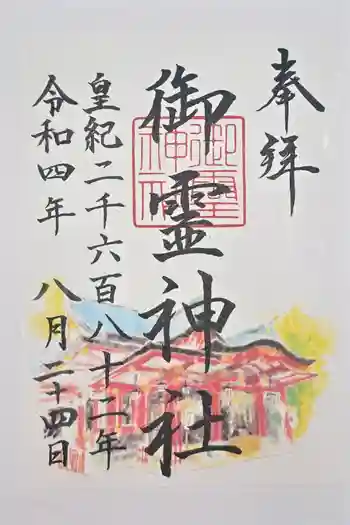 奉拝
御靈神社
御靈神社
皇紀二千六百八十二年
令和四年 八月二十四日